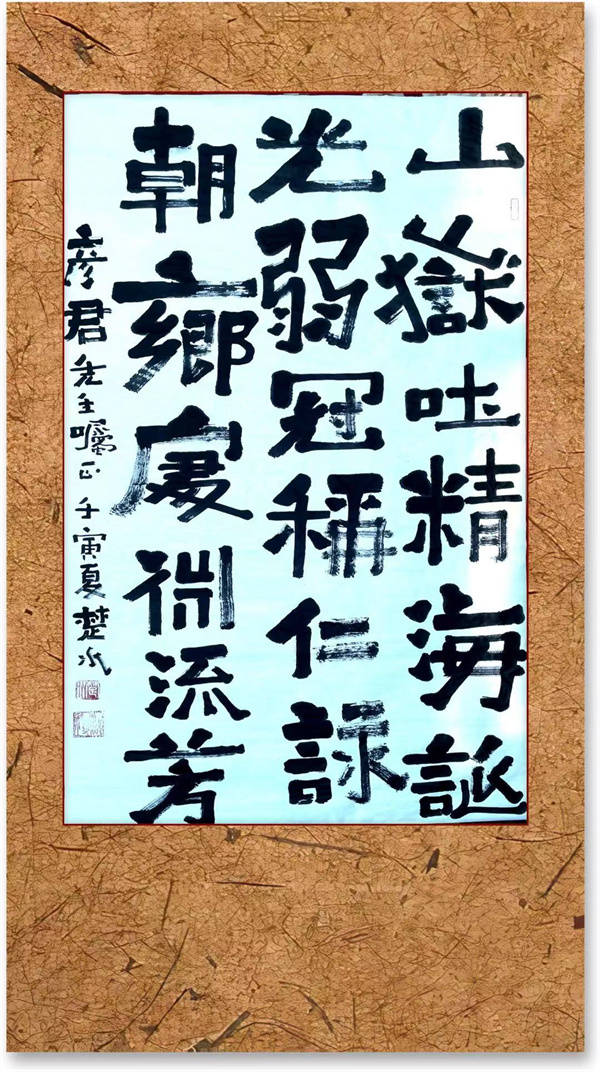 山嶽吐精海誕
光弱冠稱仁詠
朝鄉流芳
彥君先生囑正壬寅夏楚水